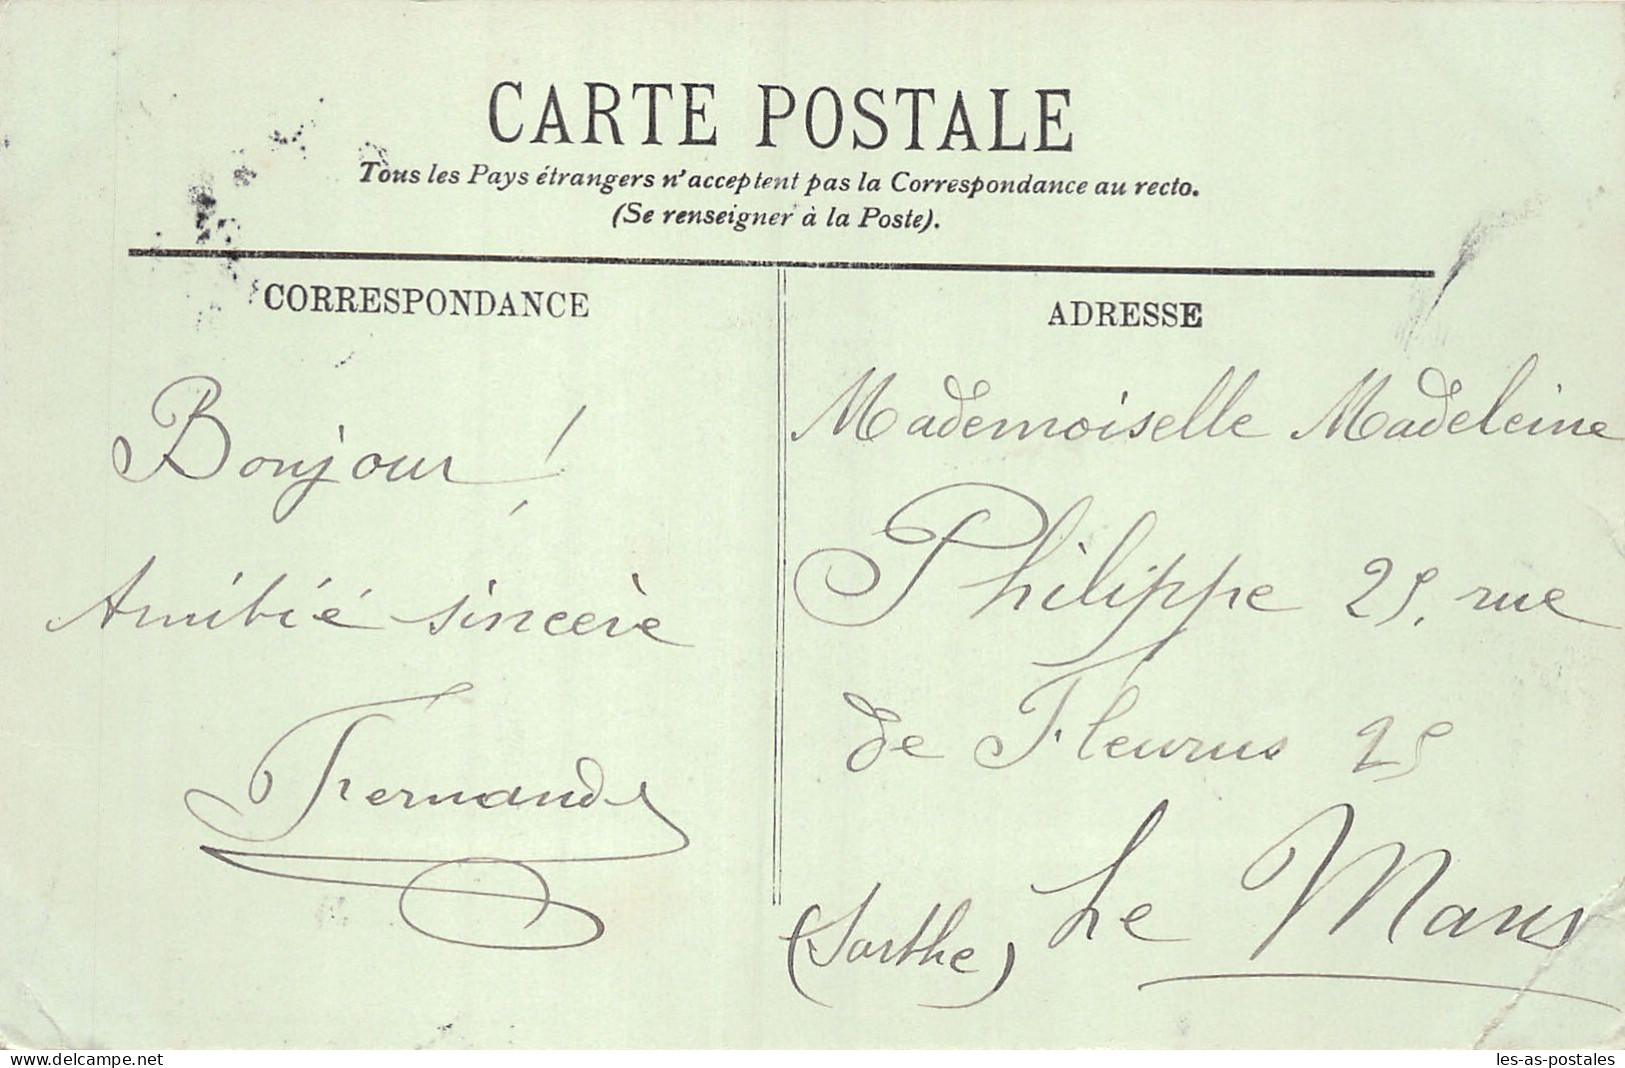 CARTE POSTALE
Tous les Pays étrangers n'acceptent pas la Correspondance au recto.
(Se renseigner à la Poste).
CORRESPONDANCE
Bonjour !
Amitié sincère
Fernand
ADRESSE
Mademoiselle Madeleine
Philippe 25, rue
de Fleurus 25
Le Mans
(Sarthe)
delcampe.net
les-as-postales